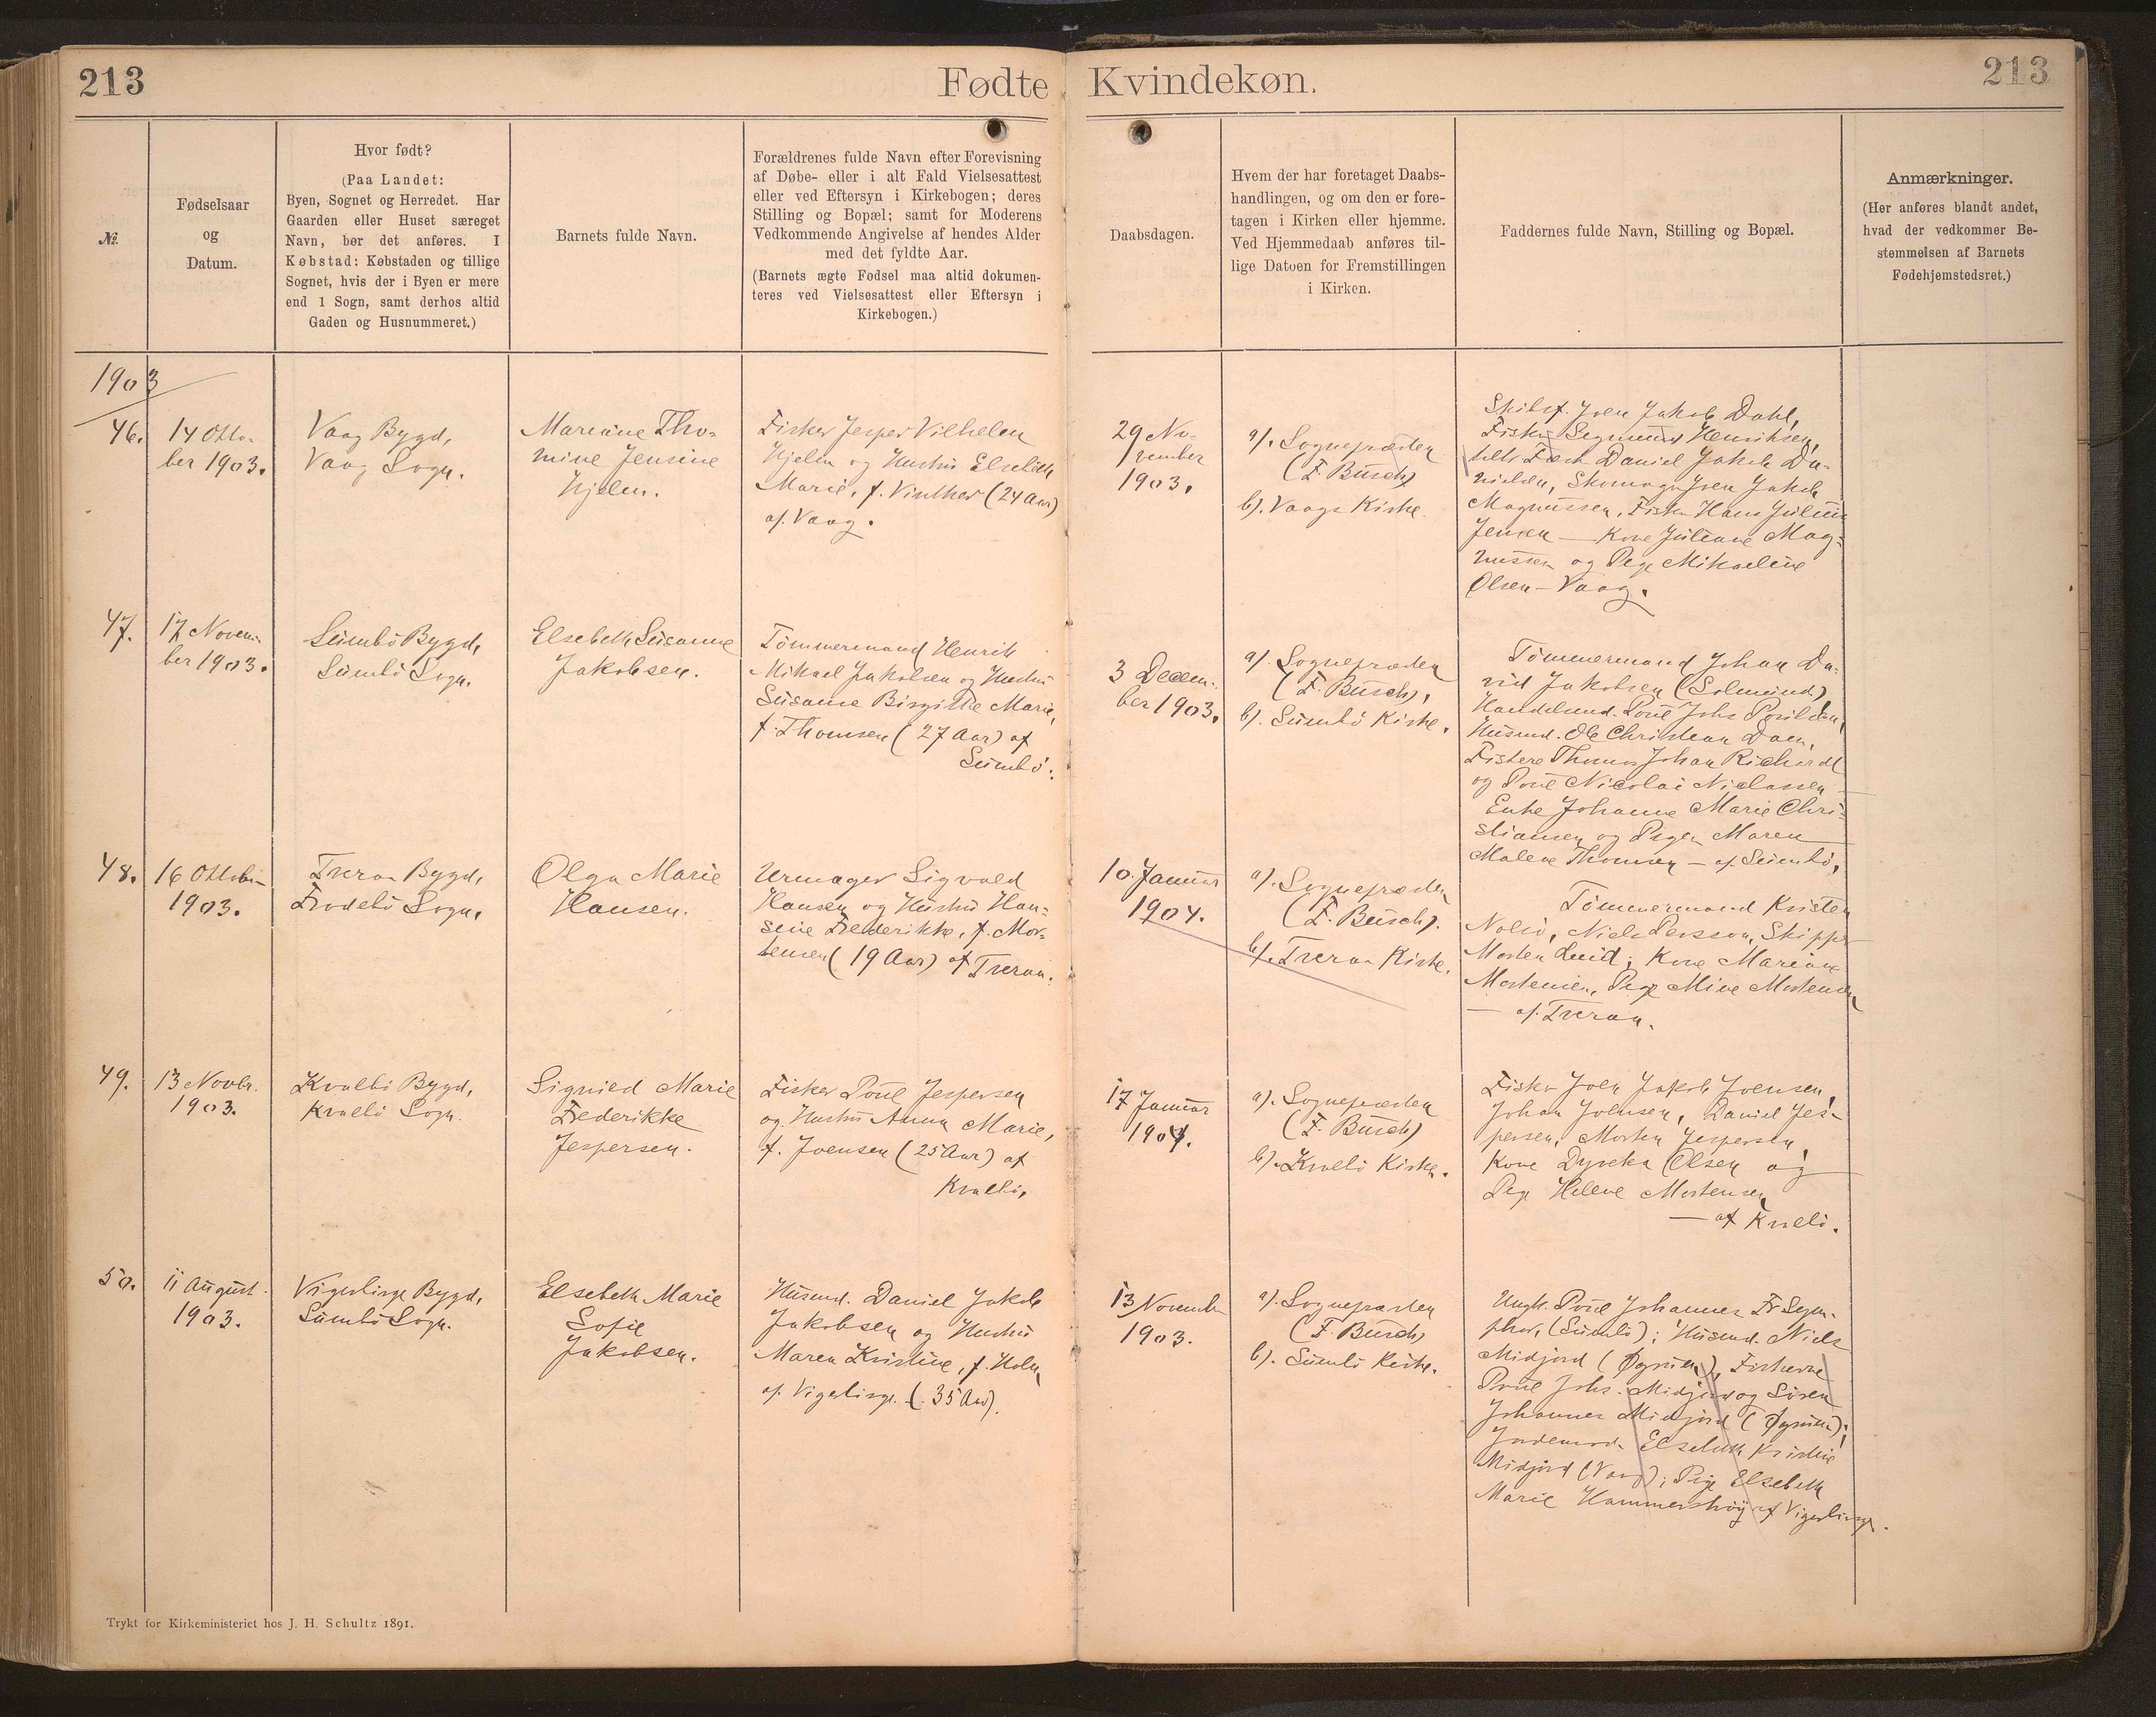 213
Fødte
Kvindekøn.
213
№.
Fødselsaar
og
Datum.
Hvor født?
(Paa Landet:
Byen, Sognet og Herredet. Har
Gaarden eller Huset særeget
Navn, bør det anføres. I
Købstad: Købstaden og tillige
Sognet, hvis der i Byen er mere
end 1 Sogn, samt derhos altid
Gaden og Husnummeret.)
Barnets fulde Navn.
Forældrenes fulde Navn efter Forevisning
af Døbe- eller i alt Fald Vielsesattest
eller ved Eftersyn i Kirkebogen; deres
Stilling og Bopæl; samt for Moderens
Vedkommende Angivelse af hendes Alder
med det fyldte Aar.
(Barnets ægte Fødsel maa altid dokumen-
teres ved Vielsesattest eller Eftersyn i
Kirkebogen.)
Daabsdagen.
Hvem der har foretaget Daabs-
handlingen, og om den er fore-
tagen i Kirken eller hjemme.
Ved Hjemmedaab anføres til-
lige Datoen for Fremstillingen
i Kirken.
Faddernes fulde Navn, Stilling og Bopæl.
Anmærkninger.
(Her anføres blandt andet,
hvad der vedkommer Be-
stemmelsen af Barnets
Fødehjemstedsret.)
1903
46.
14 Okto-
ber 1903.
Vaag Bygd,
Vaag Sogn.
Mareine Tho-
mine Jensine
Hjelm.
Fisker Jesper Vilhelm
Hjelm og Hustru Elsebeth
Marie, f. Vinther (24 Aar)
af Vaag.
29 No-
vember
1903.
a). Sognepræsten
(F. Busch)
b). Vaags Kirke.
Skibsf. Joen Jakob Dahl,
Fisker Segmund Henriksen,
Daniel Jakob Da-
nielsen, Skomager Joen Jakob
Magnussen, Fisker Hans Julius
Jensen — Kone Juliane Mag-
nussen og Pige Mikaeline
Olsen — Vaag.
47.
17 Novem-
ber 1903.
Sumbö Bygd,
Sumbö Sogn.
Elsebeth Susanne
Jakobsen.
Tömmermand Henrik
Mikael Jakobsen og Hustru
Susanne Birgitte Marie,
f. Thomsen (27 Aar) af
Sumbö.
3 Decem-
ber 1903.
a). Sognepræsten
(F. Busch),
b). Sumbö Kirke.
Tömmermand Johan Da-
vid Jakobsen (Solmund)
Handelsmd. Poul Johs Poulsen,
Husmd. Ole Christian Daen,
Fiskere Thomas Johan Richardt
og Poul Nicolai Niclassen —
Enke Johanne Marie Chri-
stiansen og Pigen Maren
Malene Thomsen — af Sumbö,
48.
16 Oktober
1903.
Tveraa Bygd,
Frodebö Sogn.
Olga Marie
Hansen.
Urmager Sigvald
Hansen og Hustru Han-
sine Frederikke, f. Mor-
tensen (19 Aar) af Tveraa.
10. Januar
1904.
a). Sognepræsten
(F. Busch).
b). Tveraa Kirke.
Tömmermand Kristen
Nolsö, Niels Persson, Skipper
Morten Luid; Kone Mariane
Mortensen, Pige Mine Mortensen
— af Tveraa.
49.
13 Novbr.
1903.
Kvalbö Bygd,
Kvalbö Sogn.
Signied Marie
Frederikke
Jespersen.
Fisker Poul Jespersen
og Hustru Anna Marie,
f. Joensen (25 Aar) af
Kvalbö.
17 Januar
1904.
a). Sognepræsten
(F. Busch)
b). Kvalbö Kirke.
Fisker Joen Jakob Joensen,
Johan Joensen, Daniel Jes-
persen, Morten Jespersen,
Kone Dyveke Olsen og
Pige Helene Mortensen
— af Kvalbö.
50.
11 August
1903.
Vigerlinge Bygd,
Sumbö Sogn.
Elsebeth Marie
Sofie
Jakobsen.
Husmd. Daniel Jakob
Jakobsen og Hustru
Maren Kristine, f. Holm,
af Vigerlinge. (35 Aar).
13 November
1903.
a). Sognepræsten
(F. Busch)
b). Sumbö Kirke.
Ungk. Poul Johannes
(Sumbö); Husmd. Niels
Midjord (Øgrum), Fiskerne
Poul Johs. Midjord og Sören
Johannes Midjord (Øgrum);
Jordemod. Elsebeth Kristine
Midjord (Vaag); Pige Elsebeth
Marie Hammershöj af Vigerlinge.
Trykt for Kirkeministeriet hos J. H. Schultz 1891.